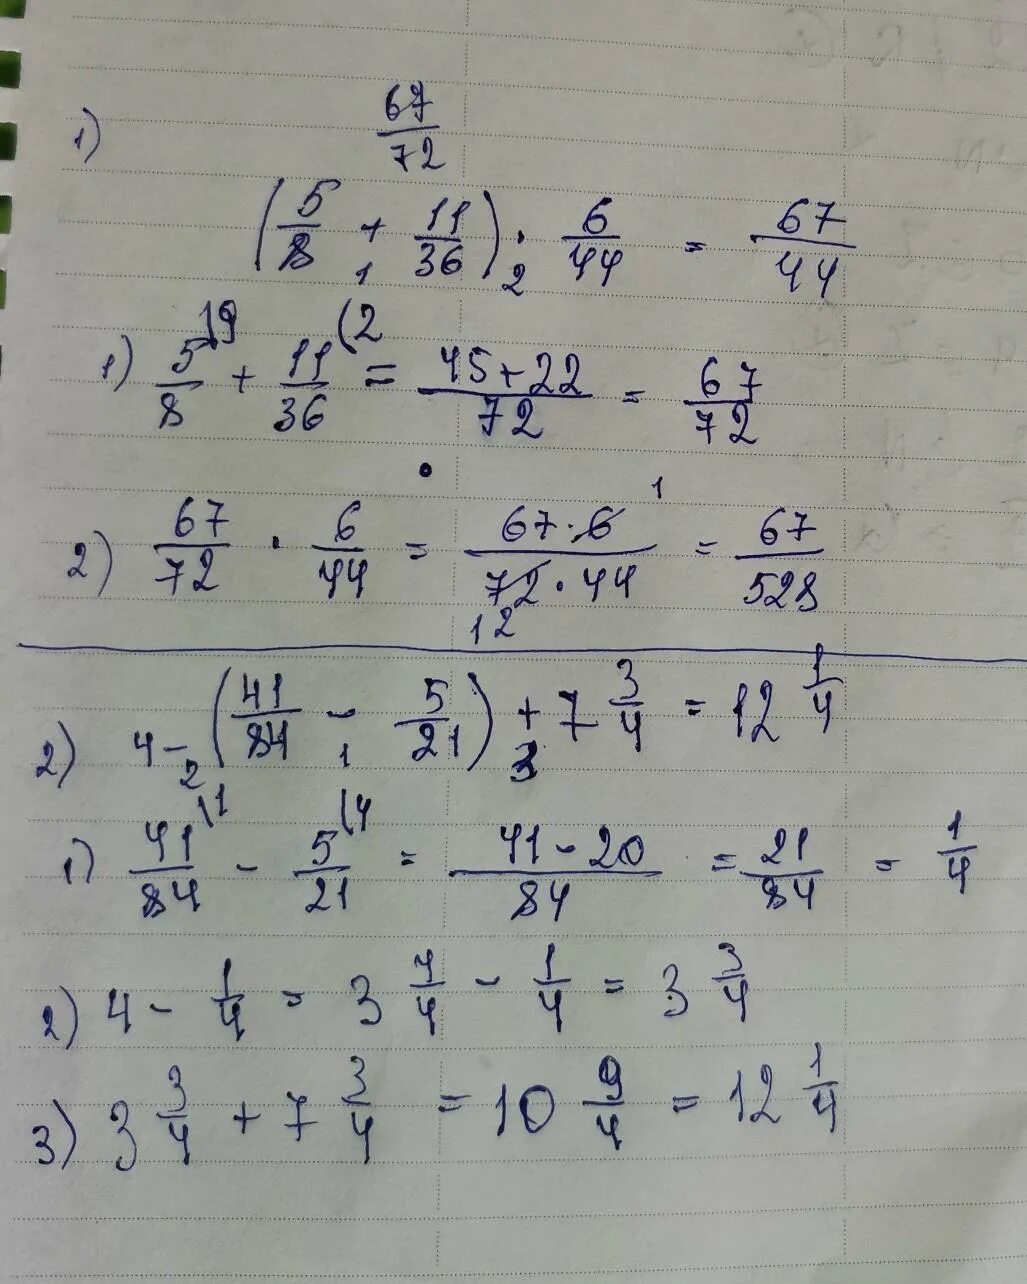 1) 67/72
(5/8 + 11/36) · 6/44 = 67/44
1 2
1) 5/8 \9 + 11/36 (2 = 45+22/72 = 67/72
2) 67/72 · 6/44 = 67·6/72·44 = 67/528
1
12
2) 4 - (41/84 - 5/21) + 7 3/4 = 12 1/4
2 1 3
1) 41/84 \1 - 5/21 (4 = 41-20/84 = 21/84 = 1/4
2) 4 - 1/4 = 3 4/4 - 1/4 = 3 3/4
3) 3 3/4 + 7 3/4 = 10 9/4 = 12 1/4